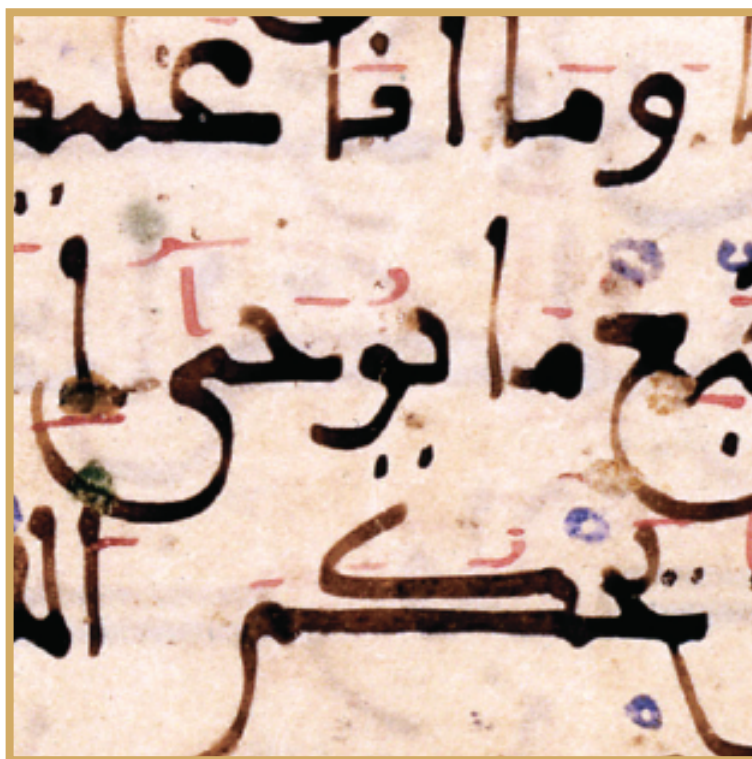 وما انا عليـ
ـبع ما يوحى ا
يحكم الـ